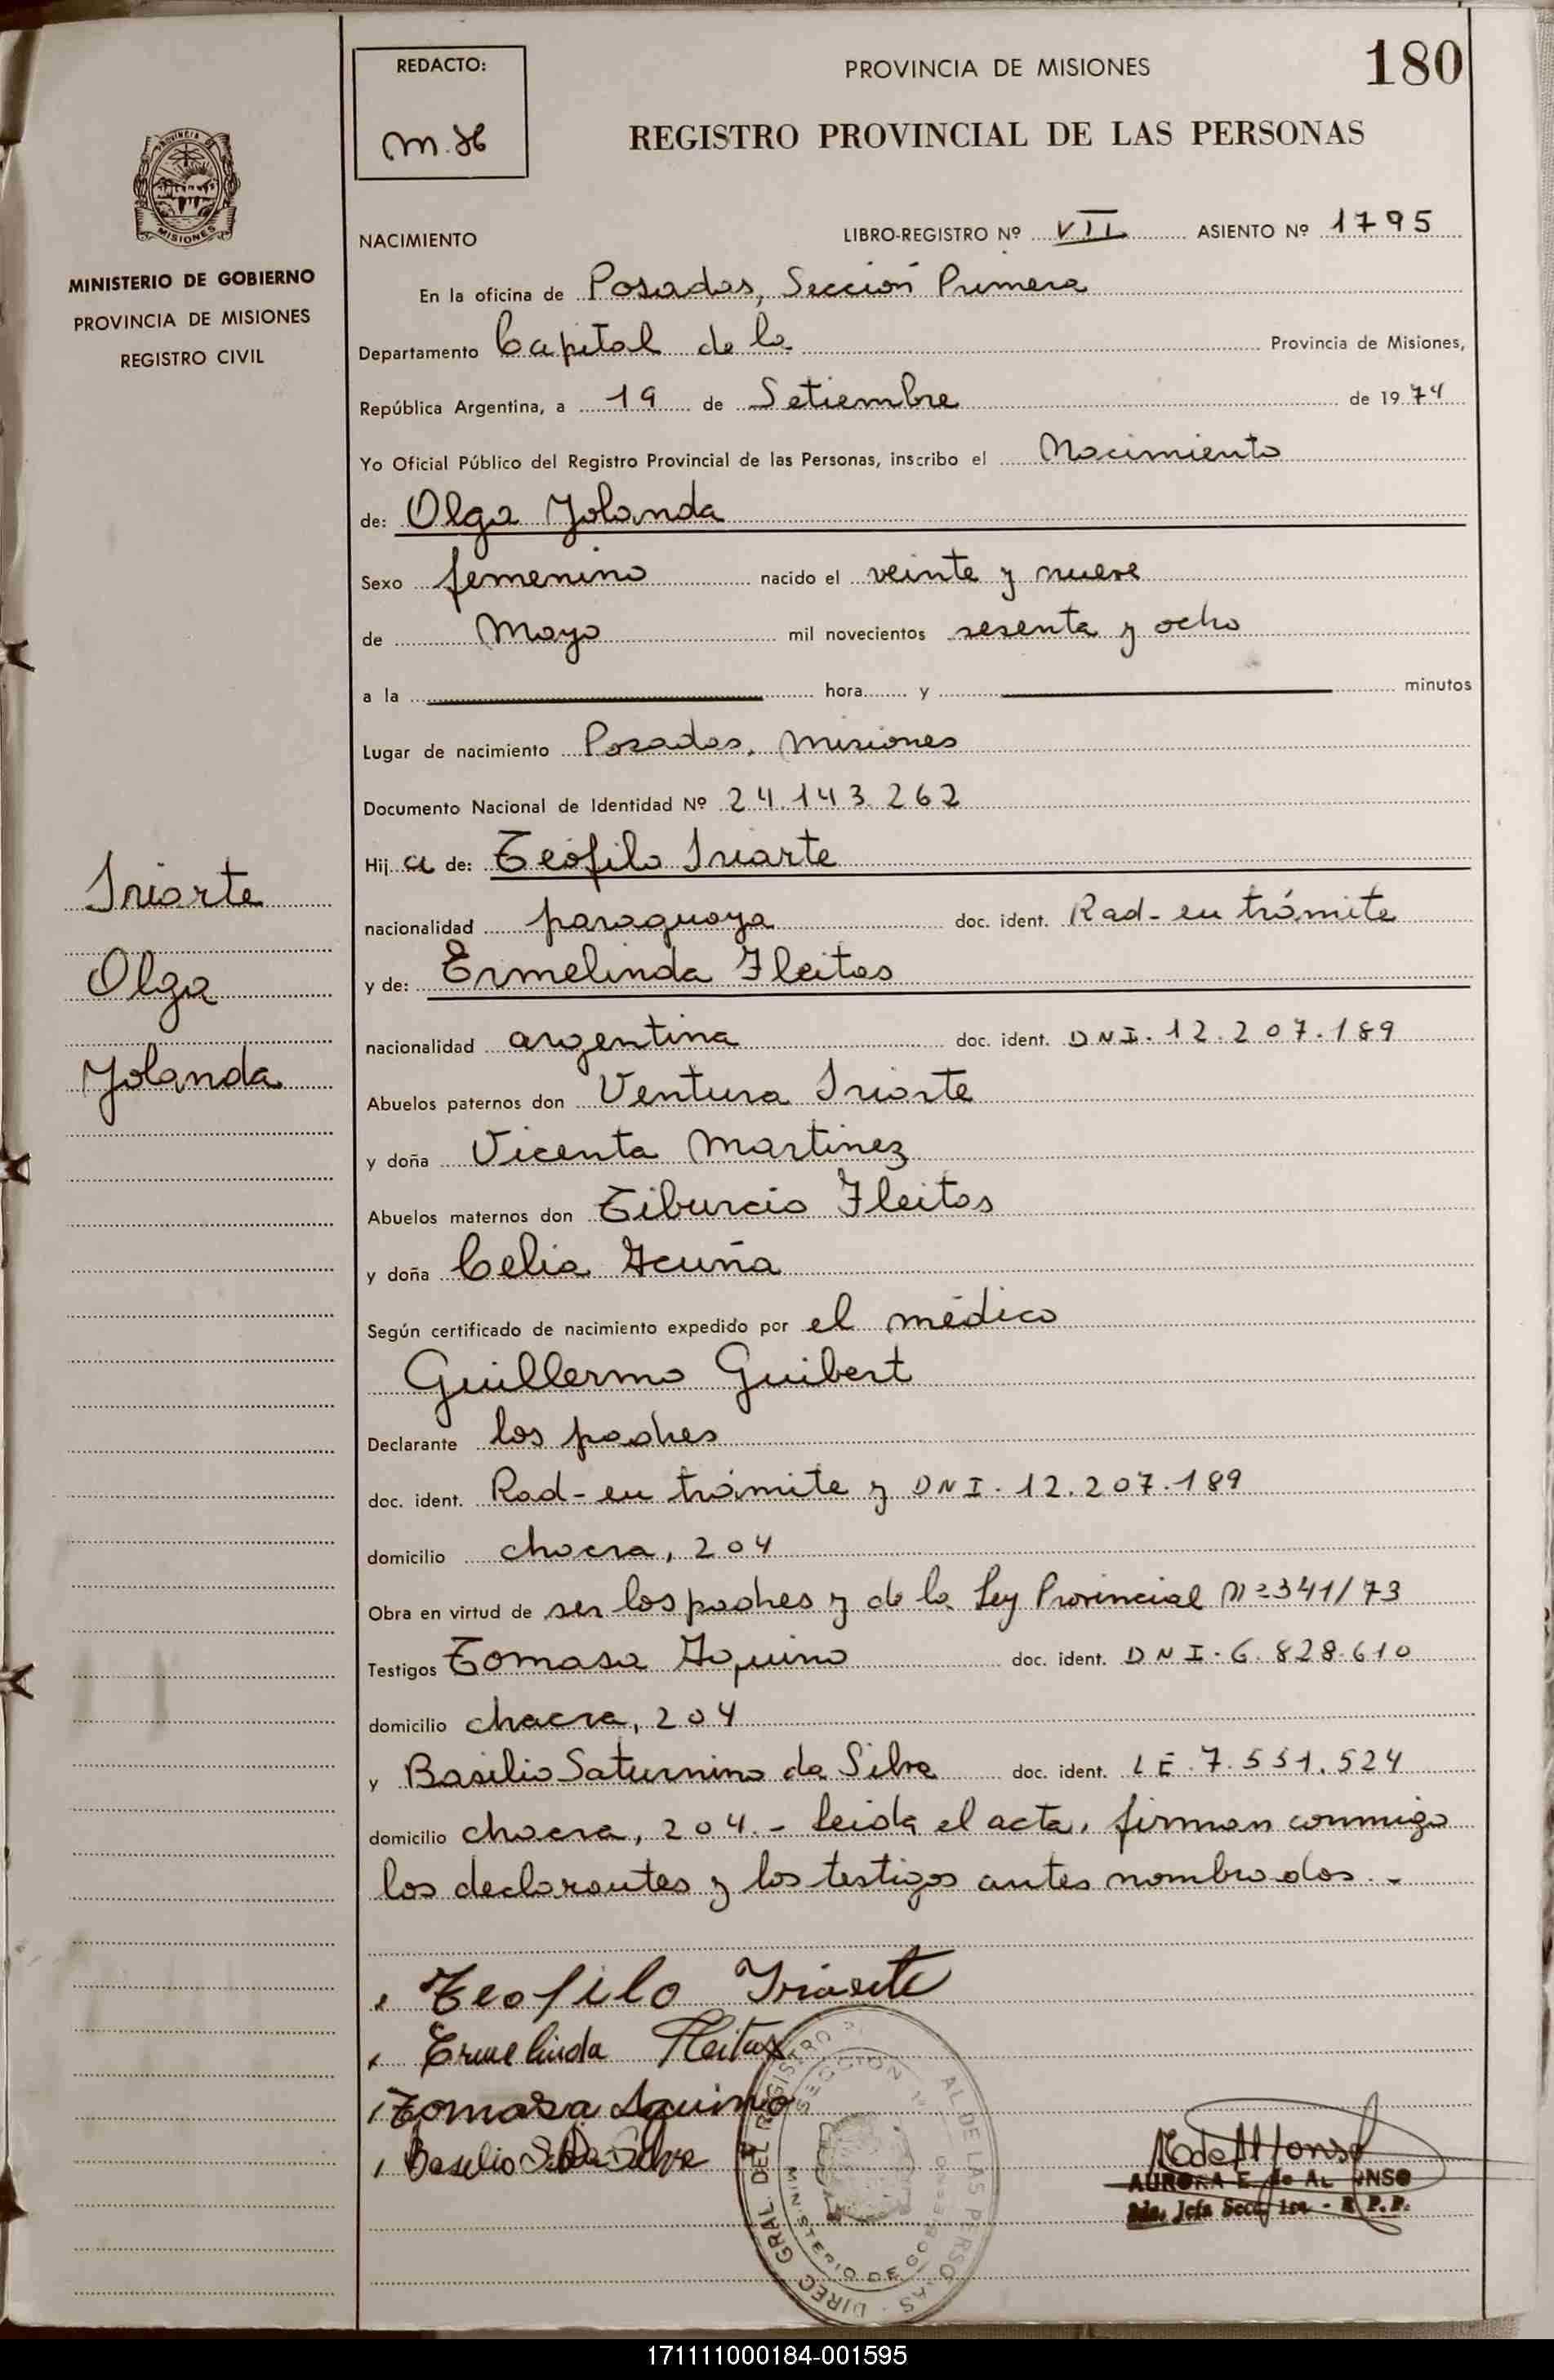 180
REDACTO:
PROVINCIA DE MISIONES
m. H
REGISTRO PROVINCIAL DE LAS PERSONAS
PROVINCIA
MISIONES
MINISTERIO DE GOBIERNO
PROVINCIA DE MISIONES
REGISTRO CIVIL
NACIMIENTO LIBRO-REGISTRO Nº VII ASIENTO Nº 1795
En la oficina de Posadas, Sección Primera
Departamento Capital de la Provincia de Misiones,
República Argentina, a 19 de Setiembre de 1974
Yo Oficial Público del Registro Provincial de las Personas, inscribo el Nacimiento
de: Olga Yolanda
Sexo femenino nacido el veinte y nueve
de Mayo mil novecientos sesenta y ocho
a la hora y minutos
Lugar de nacimiento Posadas. Misiones
Documento Nacional de Identidad Nº 24.143.262
Hija de: Teófilo Iriarte
Iriarte
nacionalidad paraguaya doc. ident. Rad- en trámite
Olga
y de: Ermelinda Fleitas
nacionalidad argentina doc. ident. DNI. 12.207.189
Yolanda
Abuelos paternos don Ventura Iriarte
y doña Vicenta Martinez
Abuelos maternos don Tiburcio Fleitas
y doña Celia Acuña
Según certificado de nacimiento expedido por el médico
Guillermo Guibert
Declarante los padres
doc. ident. Rad- en trámite y DNI. 12.207.189
domicilio chacra, 204
Obra en virtud de ser los padres y de la Ley Provincial Nº 341/73
Testigos Tomasa Aquino doc. ident. DNI. 6.828.610
domicilio chacra, 204
y Basilio Saturnino da Silva doc. ident. LE. 7.551.524
domicilio chacra, 204.- Leida el acta, firman conmigo
los declarantes y los testigos antes nombrados.-
Teofilo Iriarte
Ermelinda Fleitas
Tomasa Aquino
Basilio S. Da Silva
DIREC GRAL. DEL REGISTRO AL DE LAS PERSO AS
SECCION 1ª
MINISTERIO DE GOBIERNO
AURORA E. de ALFONSO
2da. Jefa Secc. 1ra. - R. P. P.
171111000184-001595